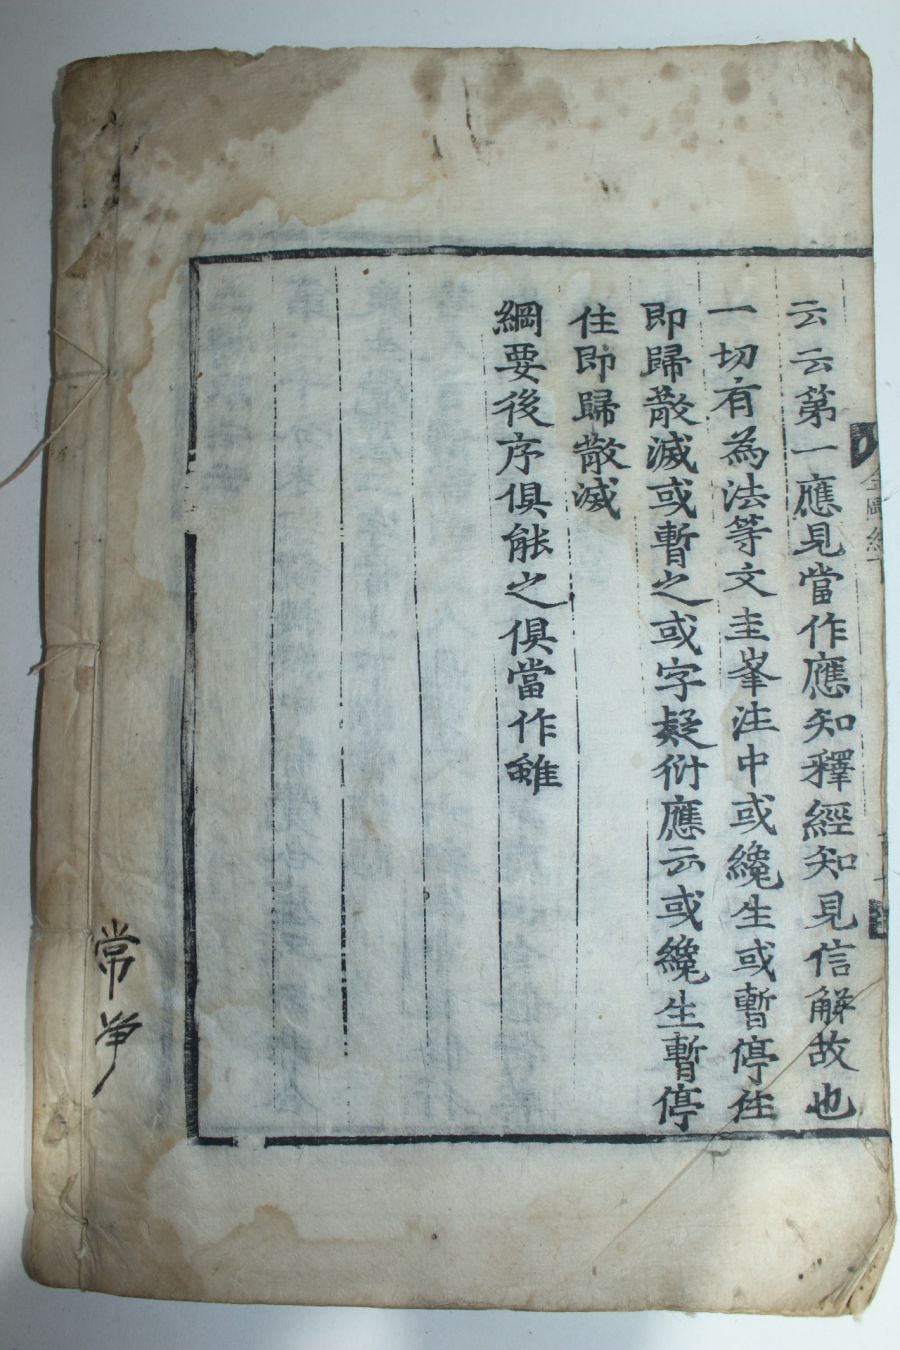 云云第一應見當作應知釋經知見信解故也
一切有為法等文圭峯注中或纔生或暫停住
即歸散滅或暫之或字疑衍應云或纔生暫停
住即歸散滅
綱要後序俱能之俱當作雖
金剛經
常淨